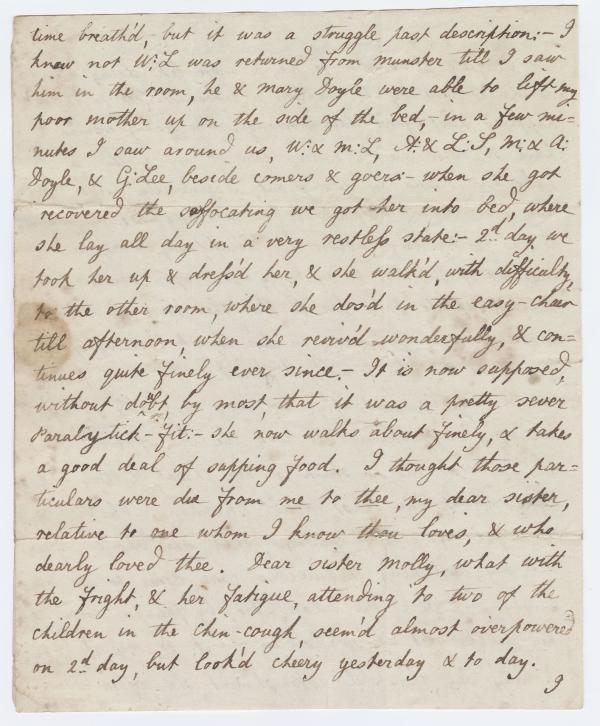 time breath'd, but it was a struggle past description:- I
know not W:L was returned from munster till I saw
him in the room, he & Mary Doyle were able to lift my
poor mother up on the side of the bed,- in a few me=
nutes I saw around us, W: & m: L, A: & L: S, m: & A:
Doyle, & G: Lee, beside comers & goers:- when she got
recovered the soffocating we got her into bed, where
she lay all day in a very restless state:- 2d. day, we
took her up & dress'd her, & she walk'd, with difficulty,
to the other room, where she dos'd in the easy-chair
till afternoon, when she reviv'd wonderfully, & con=
tinues quite finely ever since - It is now supposed,
without doubt, by most, that it was a pretty sever
Paralytick-fit:- she now walks about finely, & takes
a good deal of supping food. I thought those par=
ticulars were due from me to thee, my dear sister,
relative to one whom I know thou loves, & who
dearly loved thee. Dear sister Molly, what with
the fright, & her fatigue, attending to two of the
children in the chin-cough, seem'd almost overpowered
on 2d. day, but look'd cheery yesterday & to day.
I